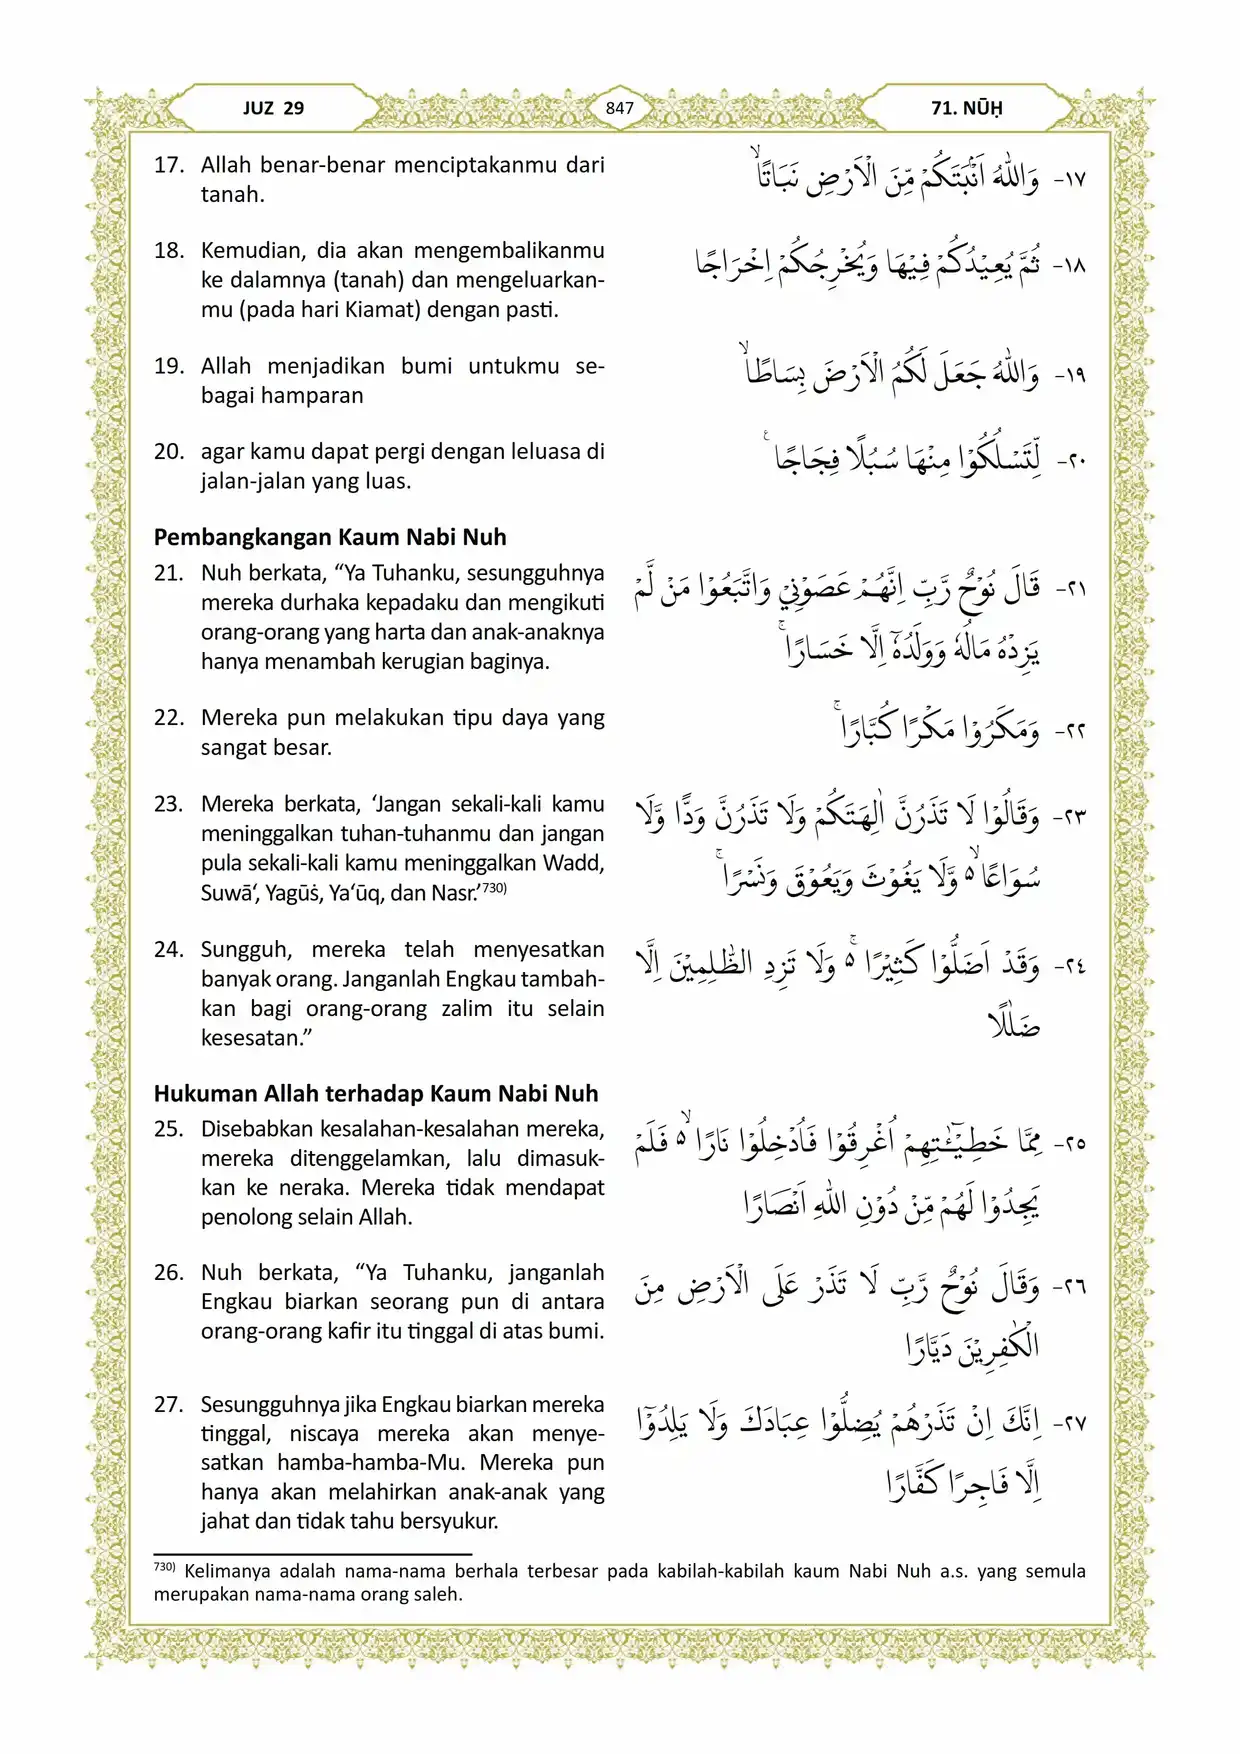 JUZ 29
847
71. NŪḤ
17. Allah benar-benar menciptakanmu dari
tanah.
١٧- وَاللّٰهُ اَنْۢبَتَكُمْ مِّنَ الْاَرْضِ نَبَاتًاۙ
18. Kemudian, dia akan mengembalikanmu
ke dalamnya (tanah) dan mengeluarkan-
mu (pada hari Kiamat) dengan pasti.
١٨- ثُمَّ يُعِيْدُكُمْ فِيْهَا وَيُخْرِجُكُمْ اِخْرَاجًا
19. Allah menjadikan bumi untukmu se-
bagai hamparan
١٩- وَاللّٰهُ جَعَلَ لَكُمُ الْاَرْضَ بِسَاطًاۙ
20. agar kamu dapat pergi dengan leluasa di
jalan-jalan yang luas.
٢٠- لِّتَسْلُكُوْا مِنْهَا سُبُلًا فِجَاجًا ࣖ
Pembangkangan Kaum Nabi Nuh
21. Nuh berkata, “Ya Tuhanku, sesungguhnya
mereka durhaka kepadaku dan mengikuti
orang-orang yang harta dan anak-anaknya
hanya menambah kerugian baginya.
٢١- قَالَ نُوْحٌ رَّبِّ اِنَّهُمْ عَصَوْنِيْ وَاتَّبَعُوْا مَنْ لَّمْ
يَزِدْهُ مَالُهٗ وَوَلَدُهٗٓ اِلَّا خَسَارًاۚ
22. Mereka pun melakukan tipu daya yang
sangat besar.
٢٢- وَمَكَرُوْا مَكْرًا كُبَّارًاۚ
23. Mereka berkata, ‘Jangan sekali-kali kamu
meninggalkan tuhan-tuhanmu dan jangan
pula sekali-kali kamu meninggalkan Wadd,
Suwā‘, Yagūṡ, Ya‘ūq, dan Nasr.’730)
٢٣- وَقَالُوْا لَا تَذَرُنَّ اٰلِهَتَكُمْ وَلَا تَذَرُنَّ وَدًّا وَّلَا
سُوَاعًا ەۙ وَّلَا يَغُوْثَ وَيَعُوْقَ وَنَسْرًاۚ
24. Sungguh, mereka telah menyesatkan
banyak orang. Janganlah Engkau tambah-
kan bagi orang-orang zalim itu selain
kesesatan.”
٢٤- وَقَدْ اَضَلُّوْا كَثِيْرًا ەۚ وَلَا تَزِدِ الظّٰلِمِيْنَ اِلَّا
ضَلٰلًا
Hukuman Allah terhadap Kaum Nabi Nuh
25. Disebabkan kesalahan-kesalahan mereka,
mereka ditenggelamkan, lalu dimasuk-
kan ke neraka. Mereka tidak mendapat
penolong selain Allah.
٢٥- مِمَّا خَطِيْۤـٰٔتِهِمْ اُغْرِقُوْا فَاُدْخِلُوْا نَارًا ەۙ فَلَمْ
يَجِدُوْا لَهُمْ مِّنْ دُوْنِ اللّٰهِ اَنْصَارًا
26. Nuh berkata, “Ya Tuhanku, janganlah
Engkau biarkan seorang pun di antara
orang-orang kafir itu tinggal di atas bumi.
٢٦- وَقَالَ نُوْحٌ رَّبِّ لَا تَذَرْ عَلَى الْاَرْضِ مِنَ
الْكٰفِرِيْنَ دَيَّارًا
27. Sesungguhnya jika Engkau biarkan mereka
tinggal, niscaya mereka akan menye-
satkan hamba-hamba-Mu. Mereka pun
hanya akan melahirkan anak-anak yang
jahat dan tidak tahu bersyukur.
٢٧- اِنَّكَ اِنْ تَذَرْهُمْ يُضِلُّوْا عِبَادَكَ وَلَا يَلِدُوْٓا
اِلَّا فَاجِرًا كَفَّارًا
730) Kelimanya adalah nama-nama berhala terbesar pada kabilah-kabilah kaum Nabi Nuh a.s. yang semula
merupakan nama-nama orang saleh.